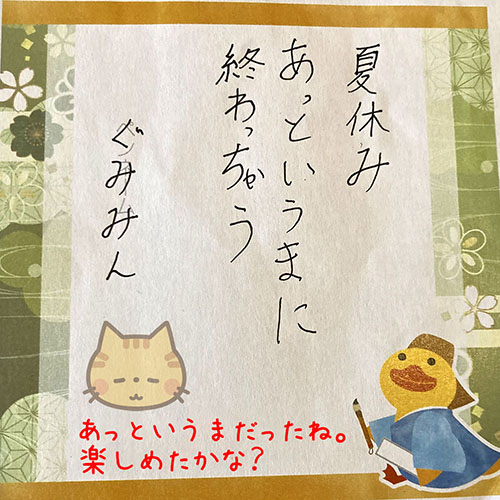 夏休み
あっというまに
終わっちゃう
ぐみみん
あっというまだったね。
楽しめたかな？